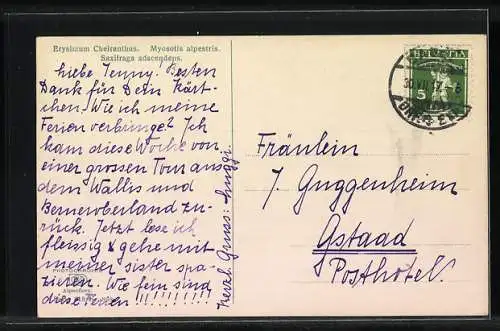 Erysimum Cheiranthus. Myosotis alpestris.
Saxifraga adscendens.
Liebe Jenny! Besten
Dank für Dein Kärt-
chen. Wie ich meine
Ferien verbringe? Ich
kam diese Woche von
einer grossen Tour aus
dem Wallis und
Berneroberland zu-
rück. Jetzt lese ich
fleissig & gehe mit
meiner sister spa-
zieren. Wie fein sind
diese Ferien !!!!!!!!!!
Herzl. Gruss:
HELVETIA
5
30.VII.17.-8
Fräulein
J. Guggenheim
Gstaad
Posthôtel.